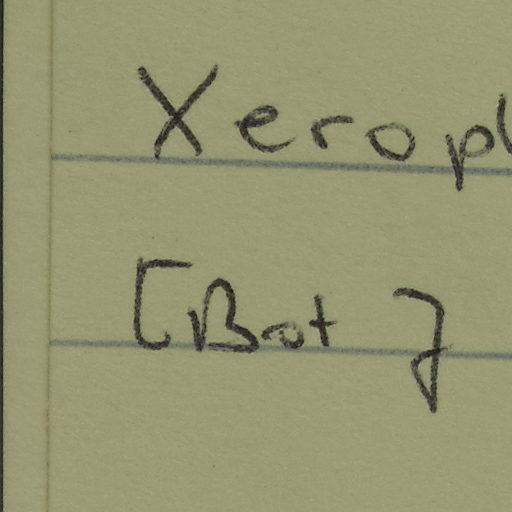 Xeroph
[Bot]